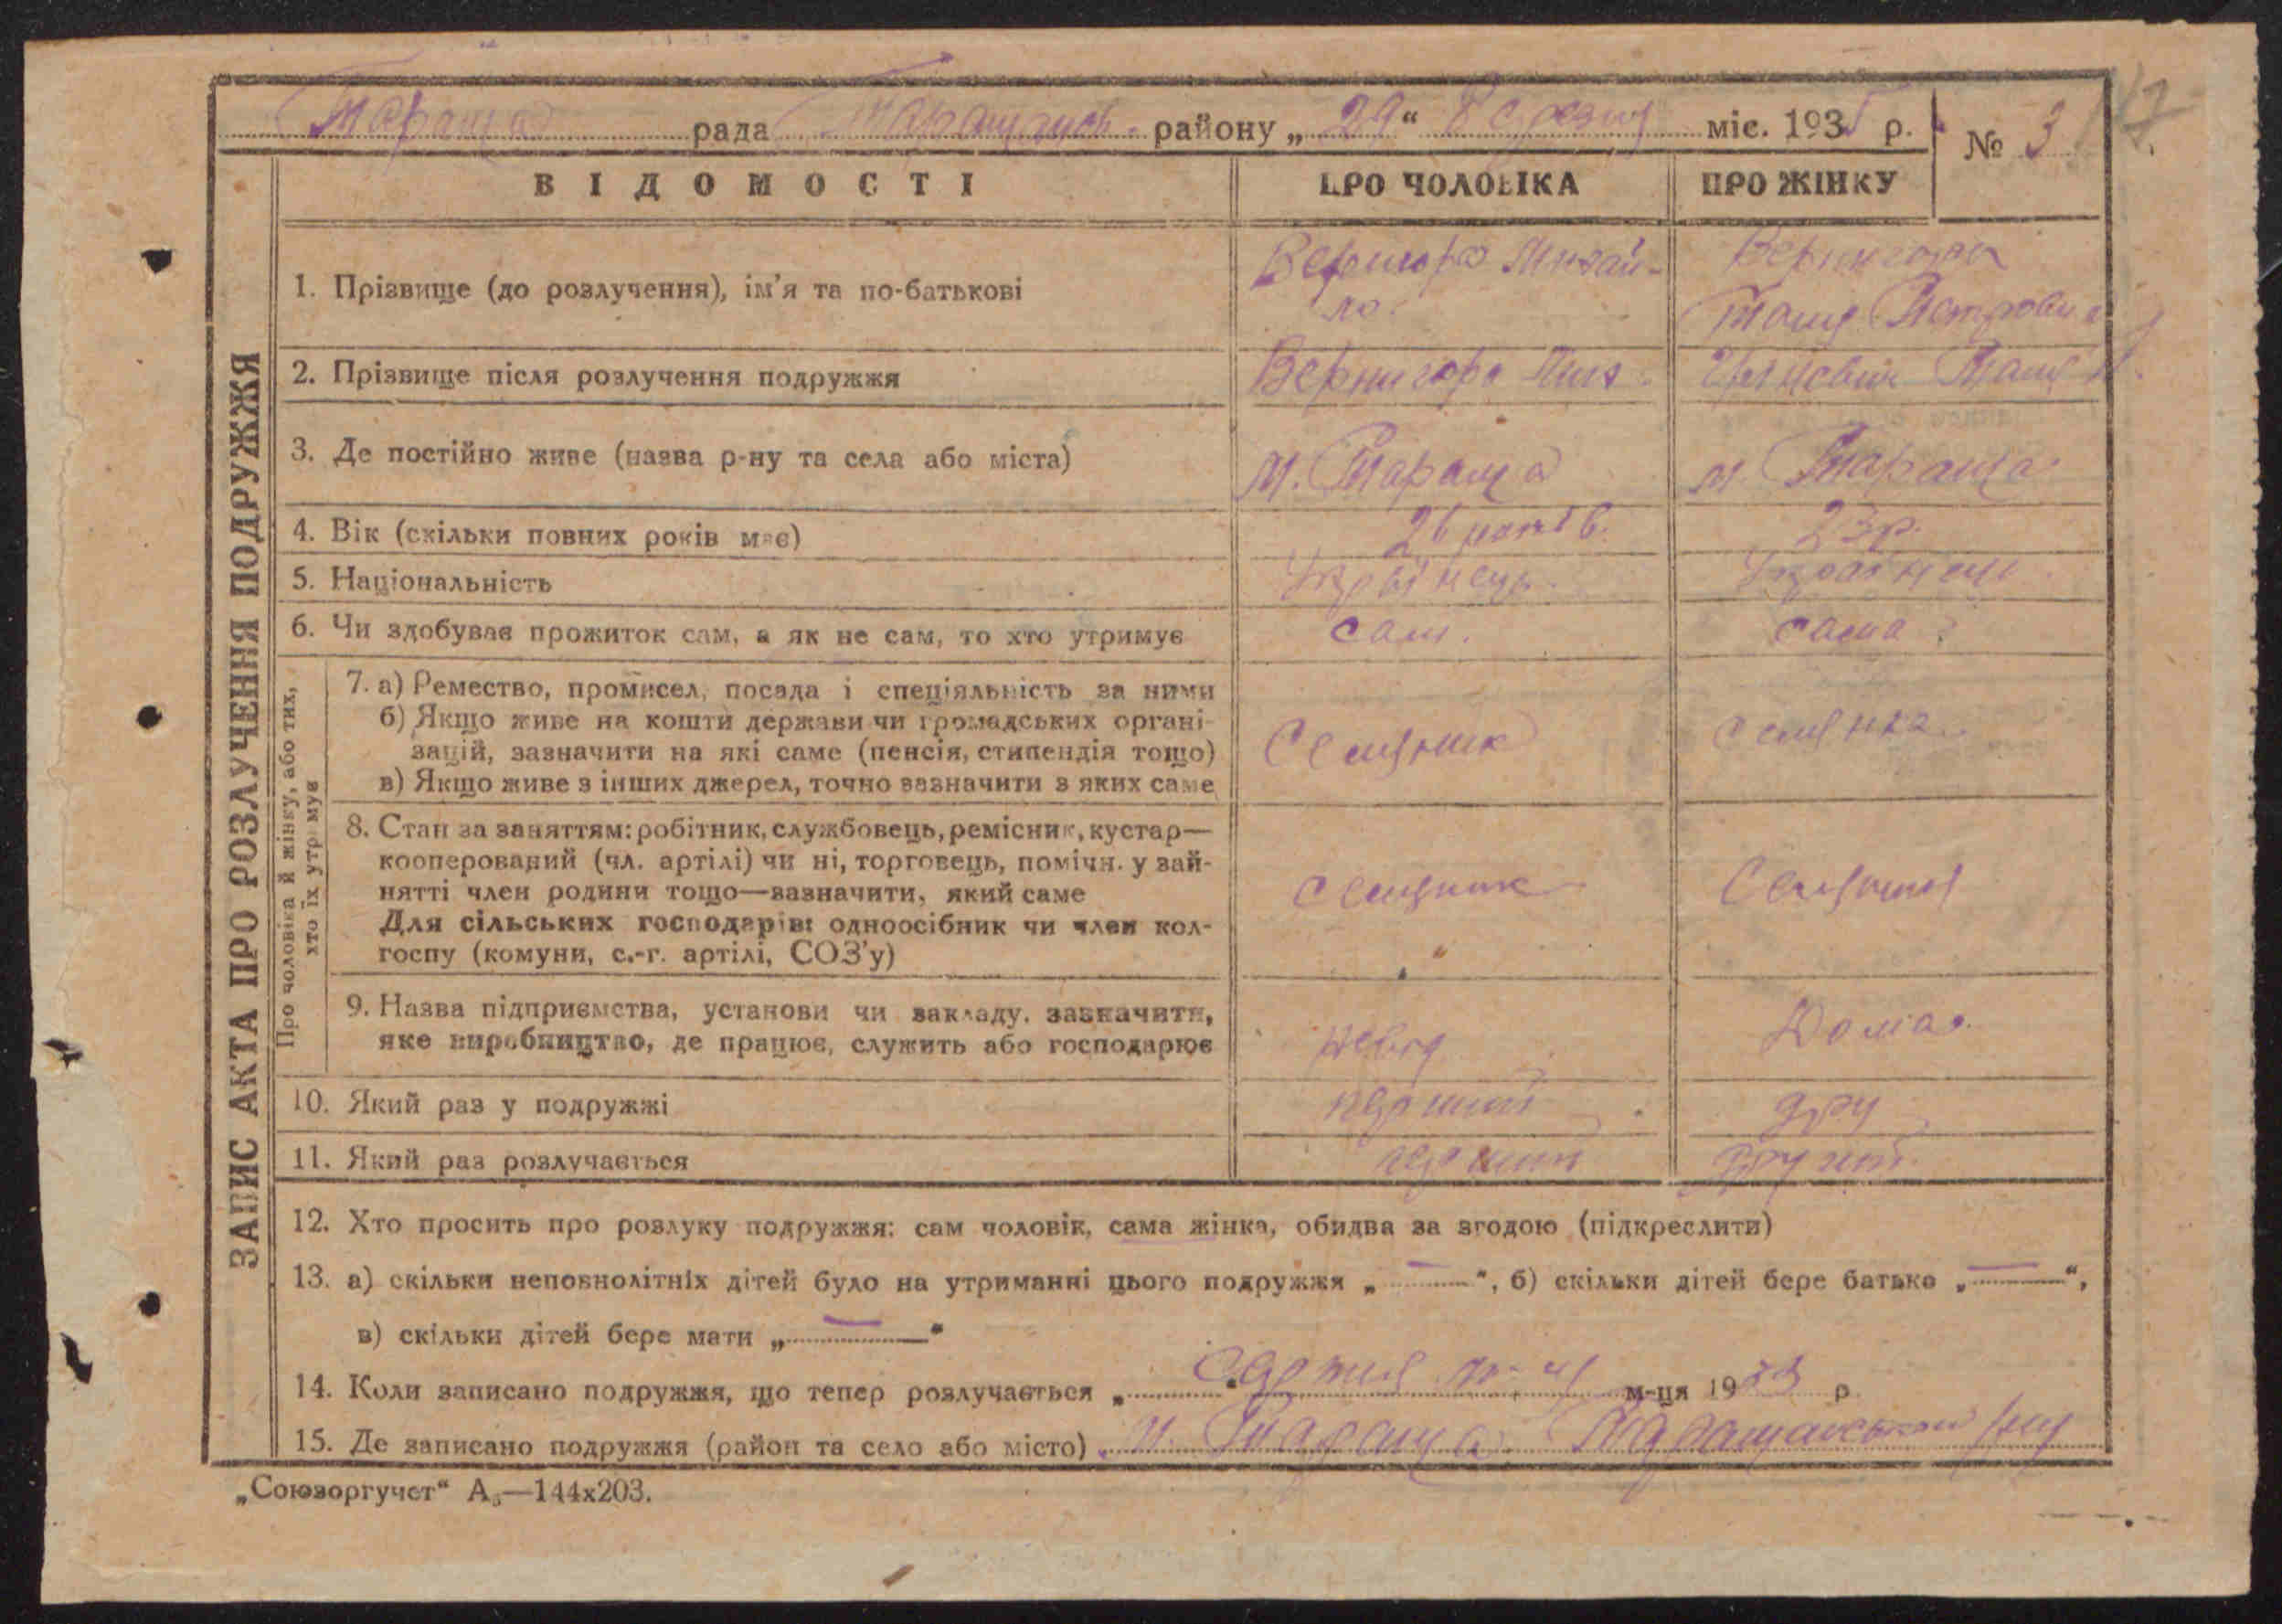 Тараща рада Таращанськ. району „29“ Березня міс. 1935 р. № 3
ВІДОМОСТІ ПРО ЧОЛОВІКА ПРО ЖІНКУ
ЗАПИС АКТА ПРО РОЗЛУЧЕННЯ ПОДРУЖЖЯ
1. Прізвище (до розлучення), ім’я та по-батькові Вернигора Михай-ло. Вернигора Петровна
2. Прізвище після розлучення подружжя Вернигора Мих.
3. Де постійно живе (назва р-ну та села або міста) м. Тараща м. Тараща
4. Вік (скільки повних років має) 26 років. 23 р.
5. Національність Українець. Українець
6. Чи здобуває прожиток сам, а як не сам, то хто утримує сам. сама
Про чоловіка й жінку, або тих, хто їх утримує
7. а) Ремество, промисел, посада і спеціяльність за ними
б) Якщо живе на кошти держави чи громадських органі-
зацій, зазначити на які саме (пенсія, стипендія тощо)
в) Якщо живе з інших джерел, точно зазначити з яких саме
8. Стан за заняттям: робітник, службовець, ремісник, кустар—
кооперований (чл. артілі) чи ні, торговець, помічн. у зай-
нятті член родини тощо—зазначити, який саме
Для сільських господарів: одноосібник чи член кол-
госпу (комуни, с.-г. артілі, СОЗ’у)
9. Назва підприємства, установи чи закладу. зазначити, Дома
яке виробництво, де працює, служить або господарює
10. Який раз у подружжі перший дру
11. Який раз розлучається перший другий
12. Хто просить про розлуку подружжя: сам чоловік, сама жінка, обидва за згодою (підкреслити)
13. а) скільки неповнолітніх дітей було на утриманні цього подружжя „—“, б) скільки дітей бере батько „—“,
в) скільки дітей бере мати „—“
14. Коли записано подружжя, що тепер розлучається „ “ Серпня м-ця 1933 р
15. Де записано подружжя (район та село або місто) м. Тараща Таращанського р-ну
„Союзоргучет“ А₅—144х203.